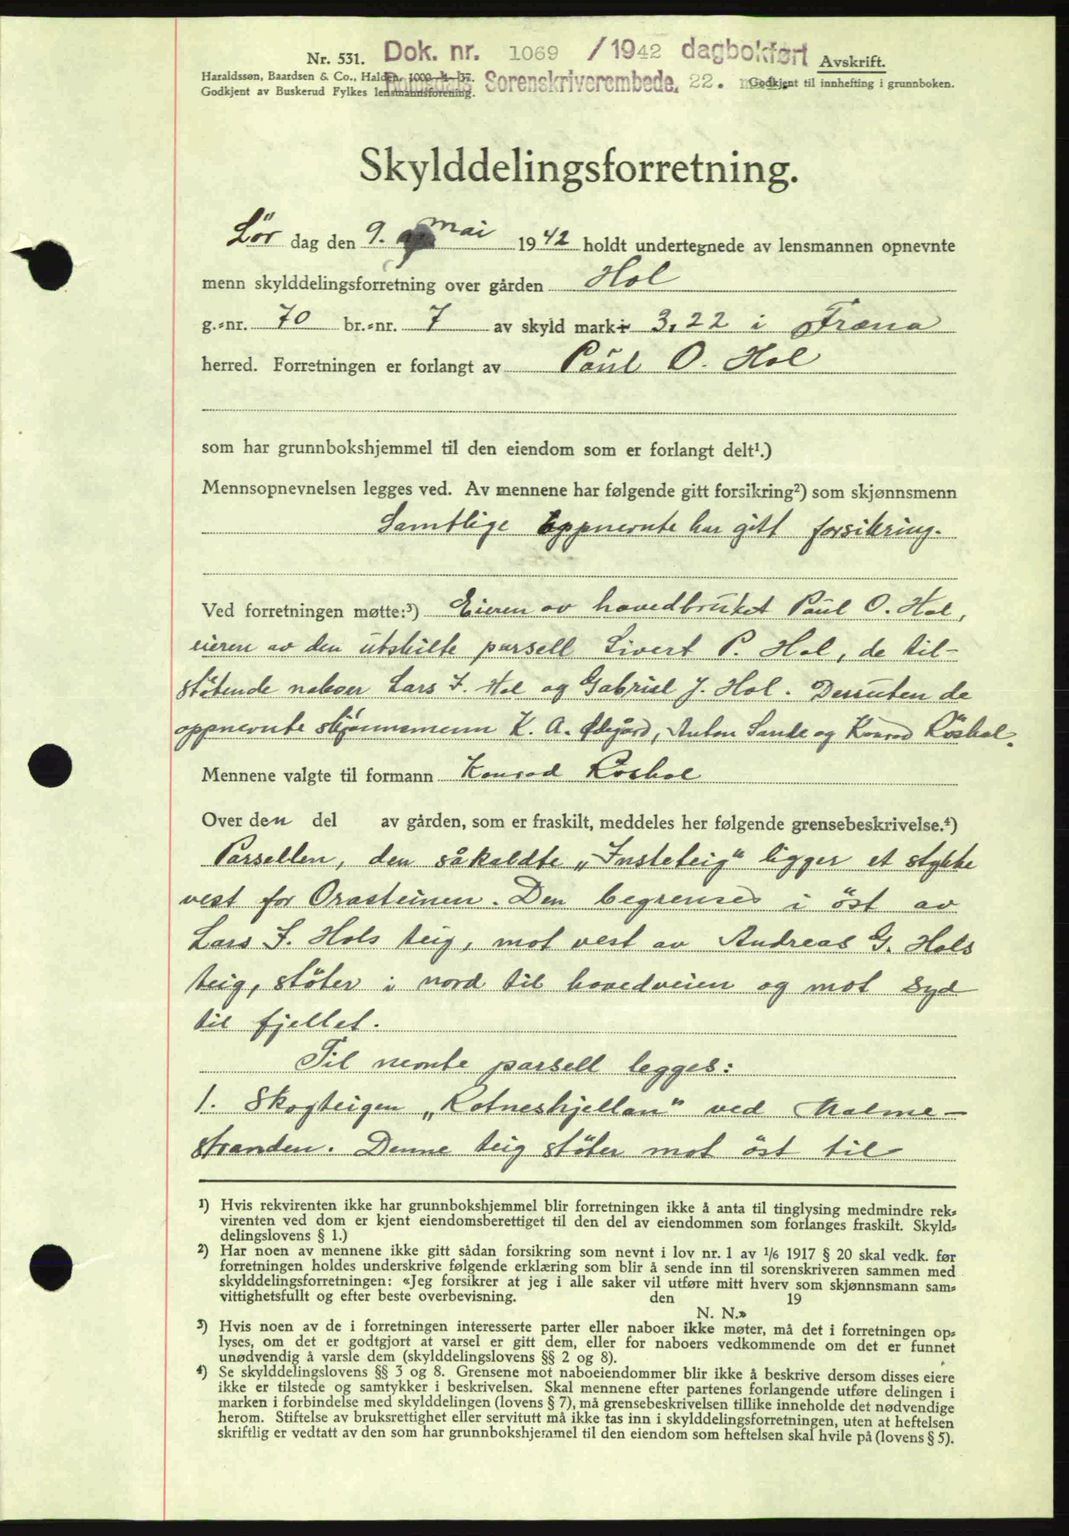 Nr. 531. Dok. nr. 1069 /1942 dagbokført Avskrift.
Haraldssøn, Baardsen & Co., Halden. 1000-4-37. Sorenskriverembede, 22. Godkjent til innhefting i grunnboken.
Godkjent av Buskerud Fylkes lensmannsforening.
Skylddelingsforretning.
Lør dag den 9. mai 1942 holdt undertegnede av lensmannen opnevnte
menn skylddelingsforretning over gården Hol
g.-nr. 70 br.-nr. 7 av skyld mark 3,22 i Fræna
herred. Forretningen er forlangt av Paul O. Hol
som har grunnbokshjemmel til den eiendom som er forlangt delt¹.)
Mennsopnevnelsen legges ved. Av mennene har følgende gitt forsikring²) som skjønnsmenn
Samtlige oppnevnte har gitt forsikring.
Ved forretningen møtte:³) Eieren av hovedbruket Paul O. Hol,
eieren av den utskilte parsell Sivert P. Hol, de til-
støtende naboer Lars J. Hol og Gabriel J. Hol. Dessuten de
oppnevnte skjønnsmenn K. A. Ødegård, Anton Sande og Konrad Röshol.
Mennene valgte til formann Konrad Röshol
Over den del av gården, som er fraskilt, meddeles her følgende grensebeskrivelse.⁴)
Parsellen, den såkaldte „Insteteig" ligger et stykke
vest for Orasteinen. Den begrenses i öst av
Lars J. Hols teig, mot vest av Andreas G. Hols
teig, stöter i nord til hovedveien og mot syd
til fjellet.
Til nevnte parsell legges:
1. Skogteigen „Rotneshjellan" ved Malme-
stranden. Denne teig stöter mot öst til
¹) Hvis rekvirenten ikke har grunnbokshjemmel blir forretningen ikke å anta til tinglysing medmindre rek-
virenten ved dom er kjent eiendomsberettiget til den del av eiendommen som forlanges fraskilt. Skyld-
delingslovens § 1.)
²) Har noen av mennene ikke gitt sådan forsikring som nevnt i lov nr. 1 av 1/6 1917 § 20 skal vedk. før
forretningen holdes underskrive følgende erklæring som blir å sende inn til sorenskriveren sammen med
skylddelingsforretningen: «Jeg forsikrer at jeg i alle saker vil utføre mitt hverv som skjønnsmann sam-
vittighetsfullt og efter beste overbevisning. den 19
N. N.»
³) Hvis noen av de i forretningen interesserte parter eller naboer ikke møter, må det i forretningen op-
lyses, om det er godtgjort at varsel er gitt dem, eller for naboers vedkommende om det er funnet
unødvendig å varsle dem (skylddelingslovens §§ 2 og 8).
⁴) Se skylddelingslovens §§ 3 og 8. Grensene mot naboeiendommer blir ikke å beskrive dersom disses eiere
ikke er tilstede og samtykker i beskrivelsen. Skal mennene efter partenes forlangende utføre delingen i
marken i forbindelse med skylddelingen (lovens § 7), må grensebeskrivelsen tillike inneholde det nødvendige
herom. Stiftelse av bruksrettighet eller servitutt må ikke tas inn i skylddelingsforretningen, uten at heftelsen
skriftlig er vedtatt av den som har grunnbokshjemmel til den eiendom som heftelsen skal hvile på (lovens § 5).